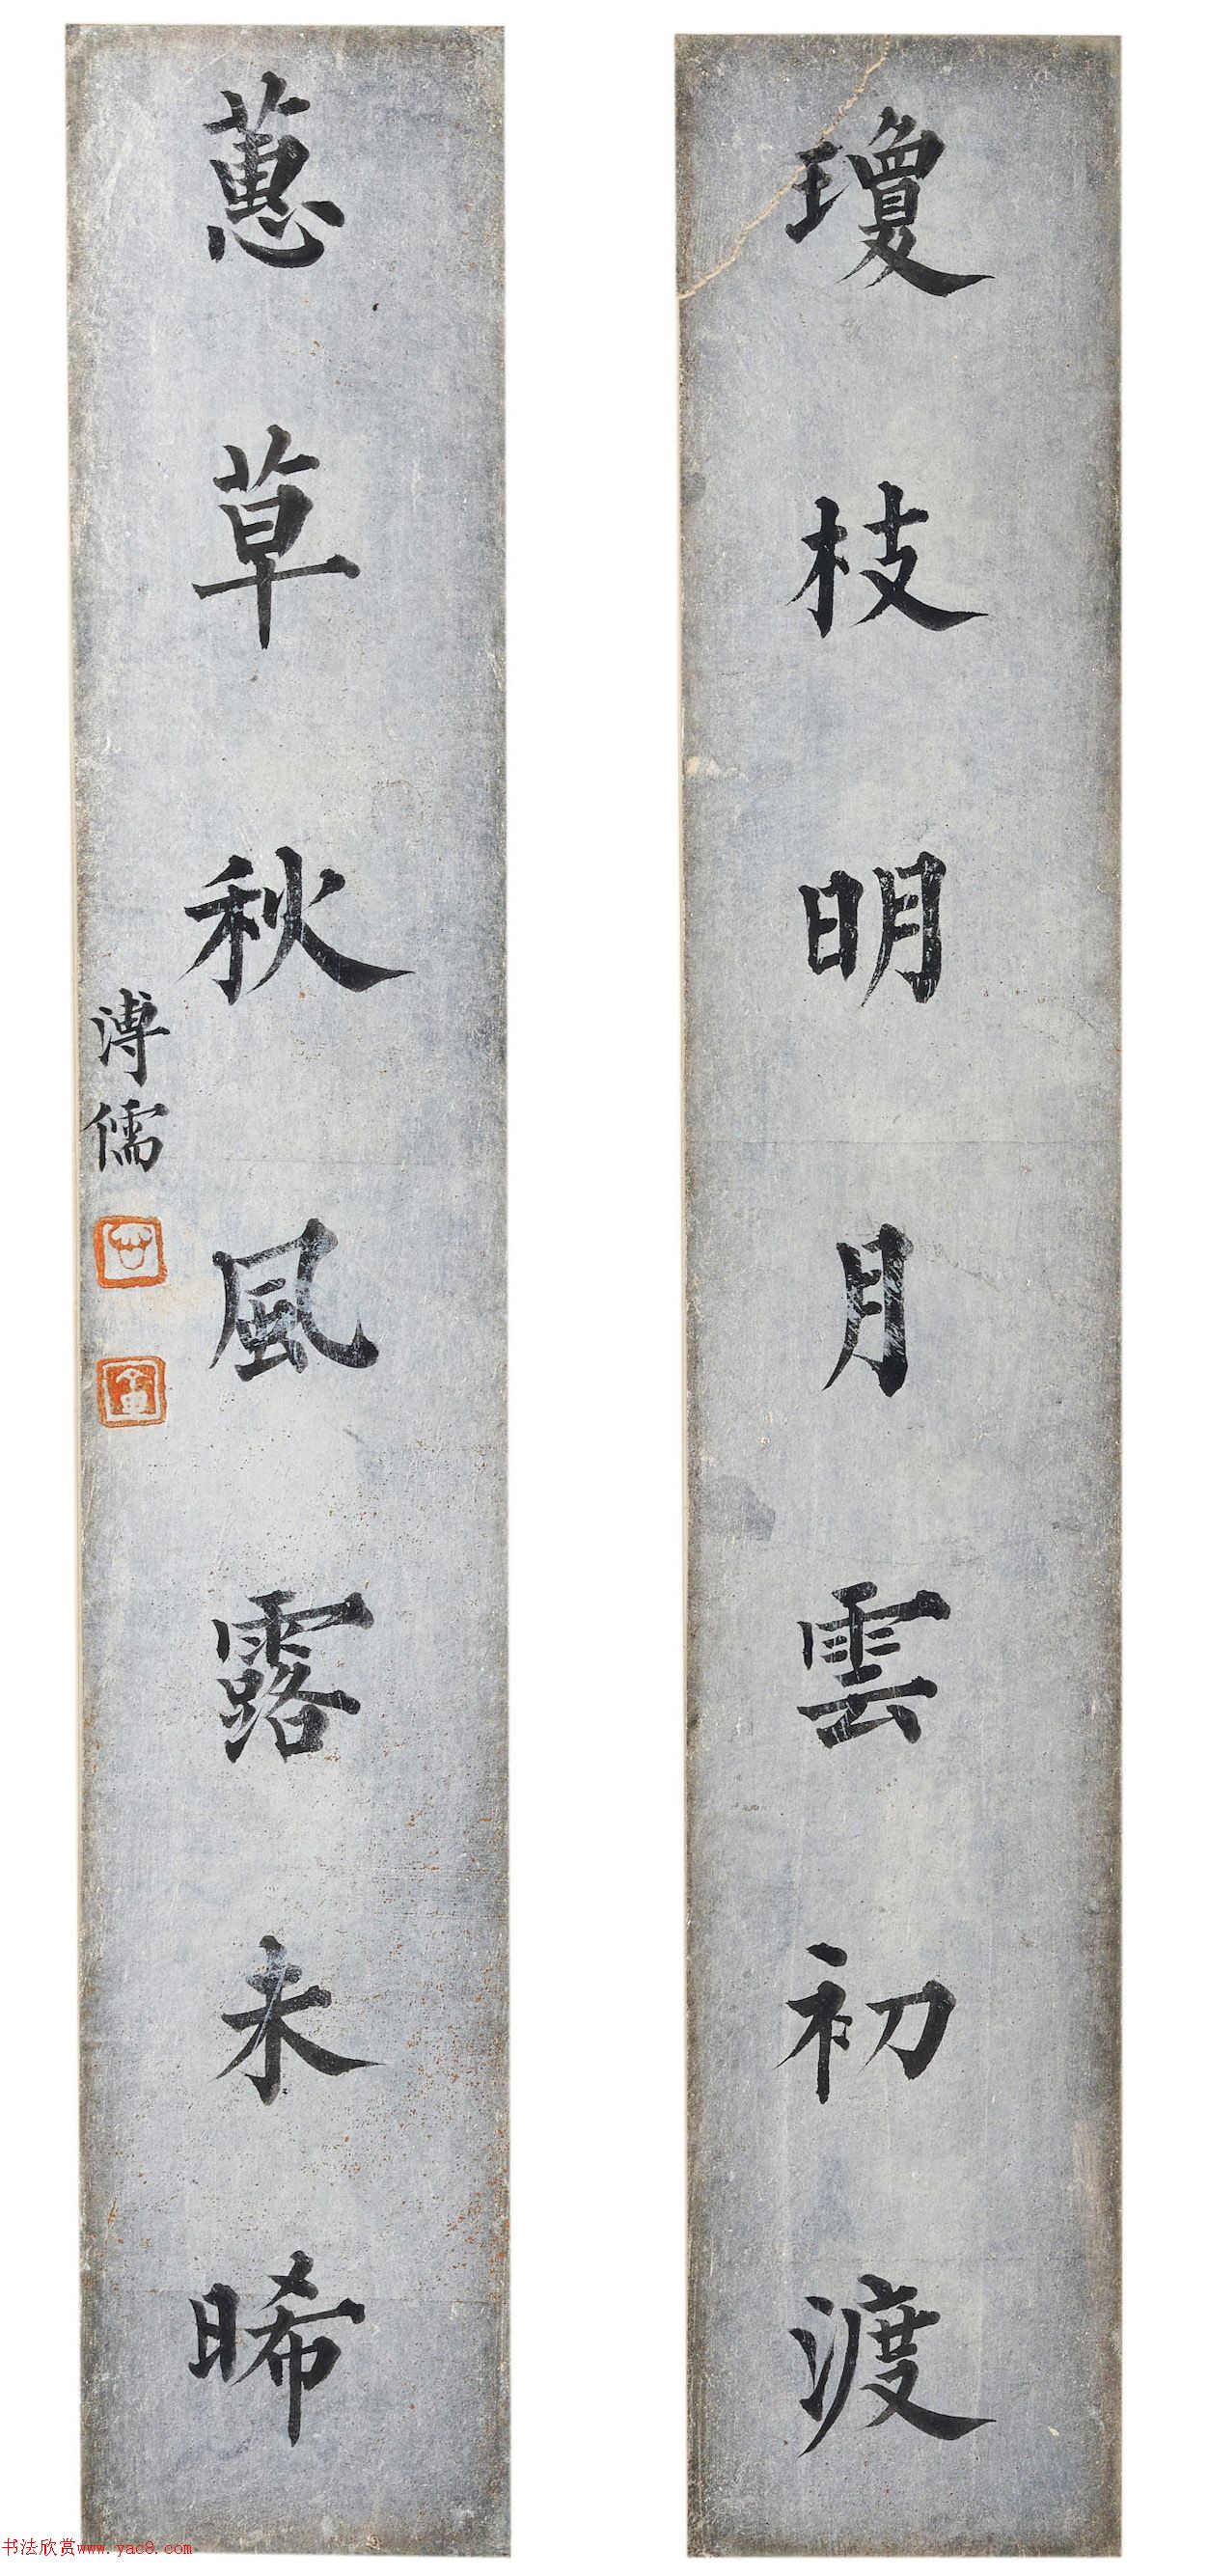 瓊枝明月雲初渡
蕙草秋風露未晞
溥儒
书法欣赏www.yac8.com